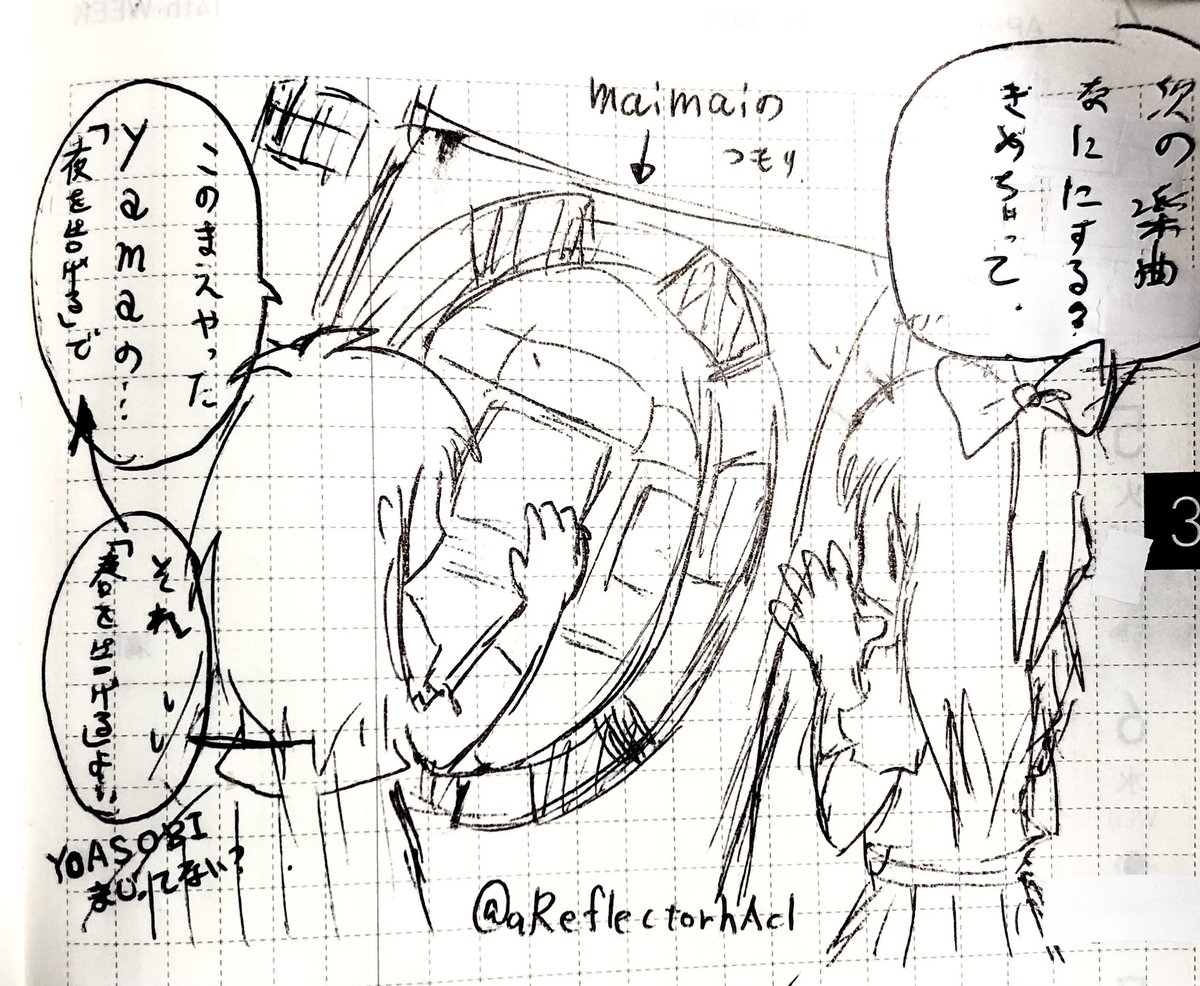 次の楽曲
なににする?
きめちゃって.
maimaiの
つもり
このまえやった
yamaの…
「夜を告げる」で
それ…
「春を告げる」よ…
YOASOBI
まじってない?
@aReflectorhAcl
3
14th-WEEK
4
5
火
6
水